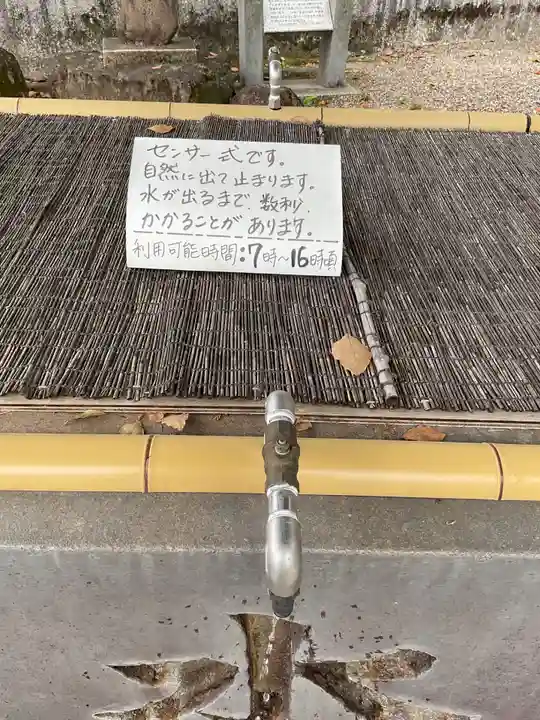 センサー式です。
自然に出て止まります。
水が出るまで、数秒、
かかることがあります。
利用可能時間:7時~16時頃